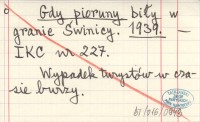 Gdy pioruny biły w
granie Świnicy. 1939. —
IKC nr 227.
Wypadek turystów w cza-
sie burzy.